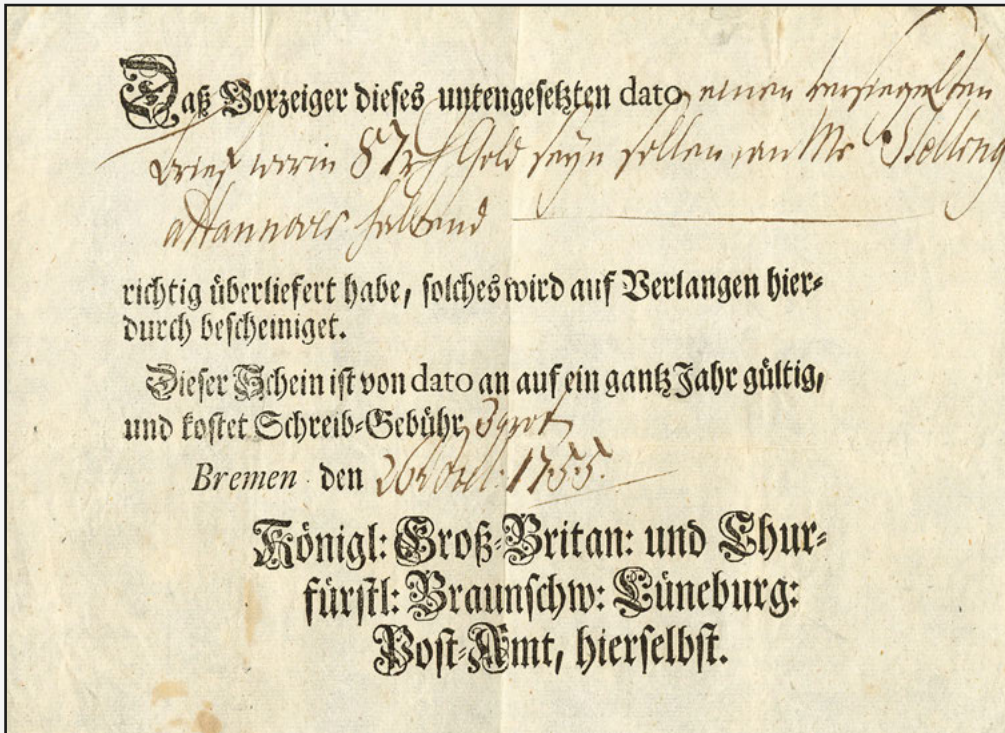 Daß Vorzeiger dieses untengesetzten dato einen versiegelten
brief worin 87 rh Gold seyn sollen, an Mr
a Hannover haltend
richtig überliefert habe, solches wird auf Verlangen hier=
durch bescheiniget.
Dieser Schein ist von dato an auf ein gantz Jahr gültig,
und kostet Schreib=Gebühr 3 grot
Bremen den 26 1755.
Königl: Groß=Britan: und Chur=
fürstl: Braunschw: Lüneburg:
Post=Amt, hierselbst.